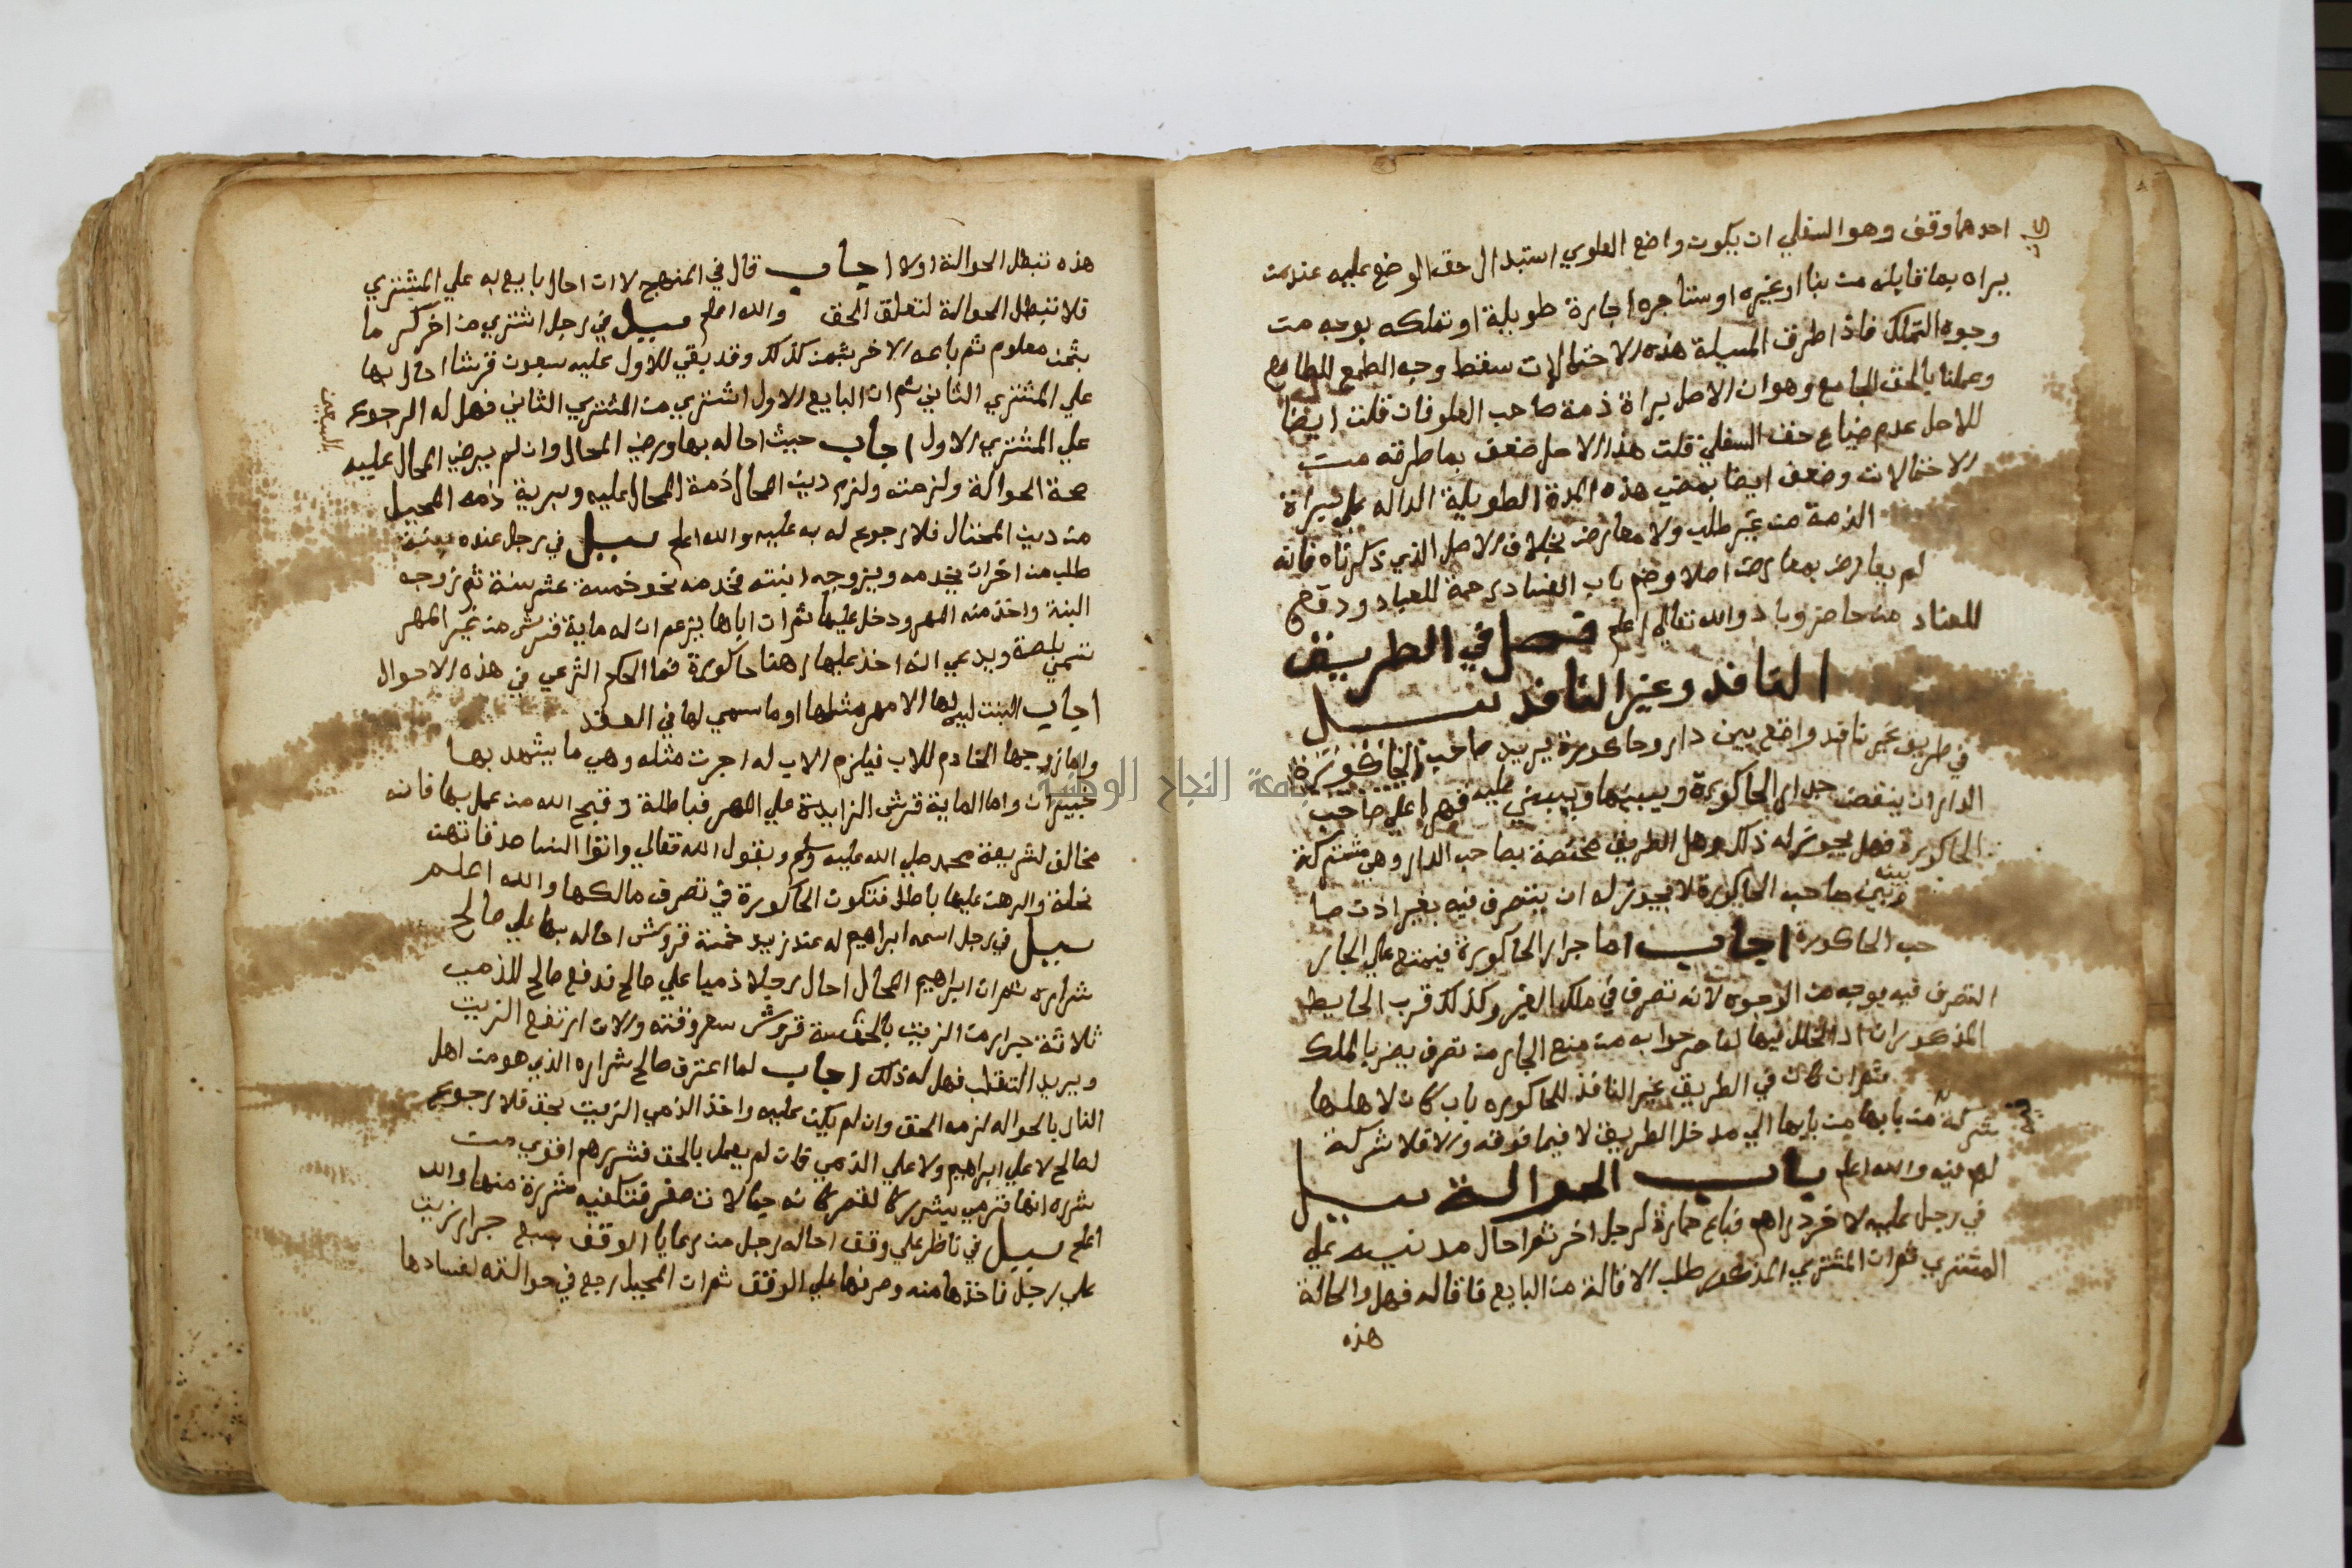 احدهما وقف وهو السفلي ان يكون واضع العلوي استبدال حق الوضع عليه عند من
يراه بما قابله من بنا او غيره او ستاجره اجارة طويلة او تملكه بوجه من
وجوه التملك فاذا طرق المسيلة هذه الاحتمالات سقط وجه الطمع للطامع
وعملنا بالحق الجامع وهو ان الاصل براة ذمة صاحب العلو فان قلت ايضا
للاصل عدم ضياع حق السفلي قلت هذا الاصل ضعف بما طرقه من
الاحتمالات وضعف ايضا بمضي هذه المدة الطويلة الداله علي براة
الذمة من غير طلب ولا معارض بخلاف الاصل الذي ذكرناه فانه
لم يعارض بمعارض اصلا وضم باب الفساد رحمة للعباد ودفع
للعناد من حاضر وباد والله تعالي اعلم فصل في الطريق
النافذ وغير النافذ سيل
في طريق غير نافذ واضع بين دار وحاكورة يريد صاحب الحاكورة
الدار ان ينقض جدار الحاكورة ويبينها ويبني عليه قهرا علي صاحب
الحاكورة فهل يجوز له ذلك وهل الطريق مختصة بصاحب الدار وهي مشتركة
بينه وبين صاحب الحاكورة لا يجوز له ان يتصرف فيه بغير اذن صا
حب الحاكورة اجاب اما جدار الحاكورة فيمتنع علي الجار
التصرف فيه بوجه من الوجوه لانه تصرف في ملك الغير وكذلك قرب الحايط
المذكور ان ادا لخلل فيها لما صرحوا به من منع الجار من تصرف يضر بالملك
ثم ان كان في الطريق غير النافذ للحاكوره باب كان لاهلها
شركة من بابها الي مدخل الطريق لا فيما فوقه والا فلا شركة
لهم فيه والله اعلم باب الحوالة سيل
في رجل عليه لاخر دراهم فباع حمارة لرجل اخر ثم احال مدينه علي
المشتري ثم ان المشتري المذكور طلب الاقالة من البايع فاقاله فهل والحالة
هذه
هذه تبطل الحوالة اولا اجاب قال في المنهج لا ان احال بايع به علي المشتري
فلا تبطل الحوالة لتعلق الحق والله اعلم سيل في رجل اشتري من اخر كرما
بثمن معلوم ثم باعه لاخر بثمن كذلك وقد بقي للاول عليه سبعون قرشا احال بها
علي المشتري الثاني ثم ان البايع الاول اشتري من المشتري الثاني فهل له الرجوع
علي المشتري الاول اجاب حيث احاله بها ورضي المحال وان لم يرضي المحال عليه
صحة الحوالة ولزمته ولزم دين المحال ذمة المحال عليه وبرية ذمه المحيل
من دين المحتال فلا رجوع له به عليه والله اعلم سيل في رجل عنده
طلب من اخران يخدمه ويزوجه ابنته فخدمه نحو خمسة عشر سنة ثم زوجه
البنة واخذ منه المهر ودخل عليها ثم ان اباها يزعم ان له ماية قرش من غير المهر
تتمي بلصة ويدعي انه اخذ عليها رهنا حاكورة فما الحكم الشرعي في هذه الاحوال
اجاب البنت ليس لها الا مهر مثلها او ما سمي لها في العقد
واما زوجها الخادم للاب فيلزم الاب له اجرت مثله وهي ما يشهد بها
خبيران واما الماية قرش الزايدة علي المهر فباطلة وقبح الله من عمل بها فانه
مخالف لشريعة محمد صلي الله عليه وسلم وبقول الله تعالي واتوا النسا صدقاتهن
نحلة والرهن عليها باطل فتكون الحاكورة في تصرف مالكها والله اعلم
سيل في رجل اسمه ابراهيم له عند زيد خمسة قروش احاله بها علي صالح
شراره ثم ان ابراهيم المحال احال رجلا ذميا علي صالح فدفع صالح للذمي
ثلاثة جرار من الزيت بالخمسة قروش معروفته والان ارتفع الزيت
ويريد التقلب فهل له ذلك اجاب لما اعترف صالح شراره الذي هو من اهل
النار بالحواله لزمه الحق وان لم يكن عليه واخذ الذمي الزيت بحق فلا رجوع
لصالح لا علي ابراهيم ولا علي الذمي فان لم يعمل بالحق فشررهم اقوي من
شرره انها ترمي بشرر كالقصر كانه جمالات صفر فتكفيه شررة منها والله
اعلم سيل في ناظر علي وقف احاله رجل من رعايا الوقف بسبع جرار زيت
علي رجل فاخذها منه وصرفها علي الوقف ثم ان المحيل رجع في حوالته لفسادها
جامعة النجاح الوطنية